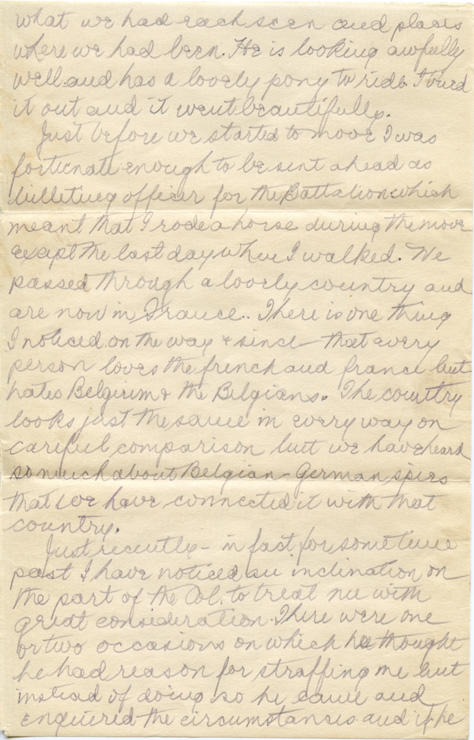 what we had each seen and places
where we had been. He is looking awfully
well and has a lovely pony to ride I tried
it out and it went beautifully.
Just before we started to move I was
fortunate enough to be sent ahead as
billeting officer for the Battalion which
meant that I rode a horse during the move
except the last day when I walked. We
passed through a lovely country and
are now in France. There is one thing
I noticed on the way & since - that every
person loves the french and france but
hates Belgium & the Belgians. The country
looks just the same in every way on
careful comparison but we have heard
so much about Belgian-German spies
that we have connected it with that
country.
Just recently - in fact for sometime
past I have noticed an inclination on
the part of the Col. to treat me with
great consideration. There were one
or two occasions on which he thought
he had reason for straffing me but
instead of doing so he came and
enquired the circumstances and if he